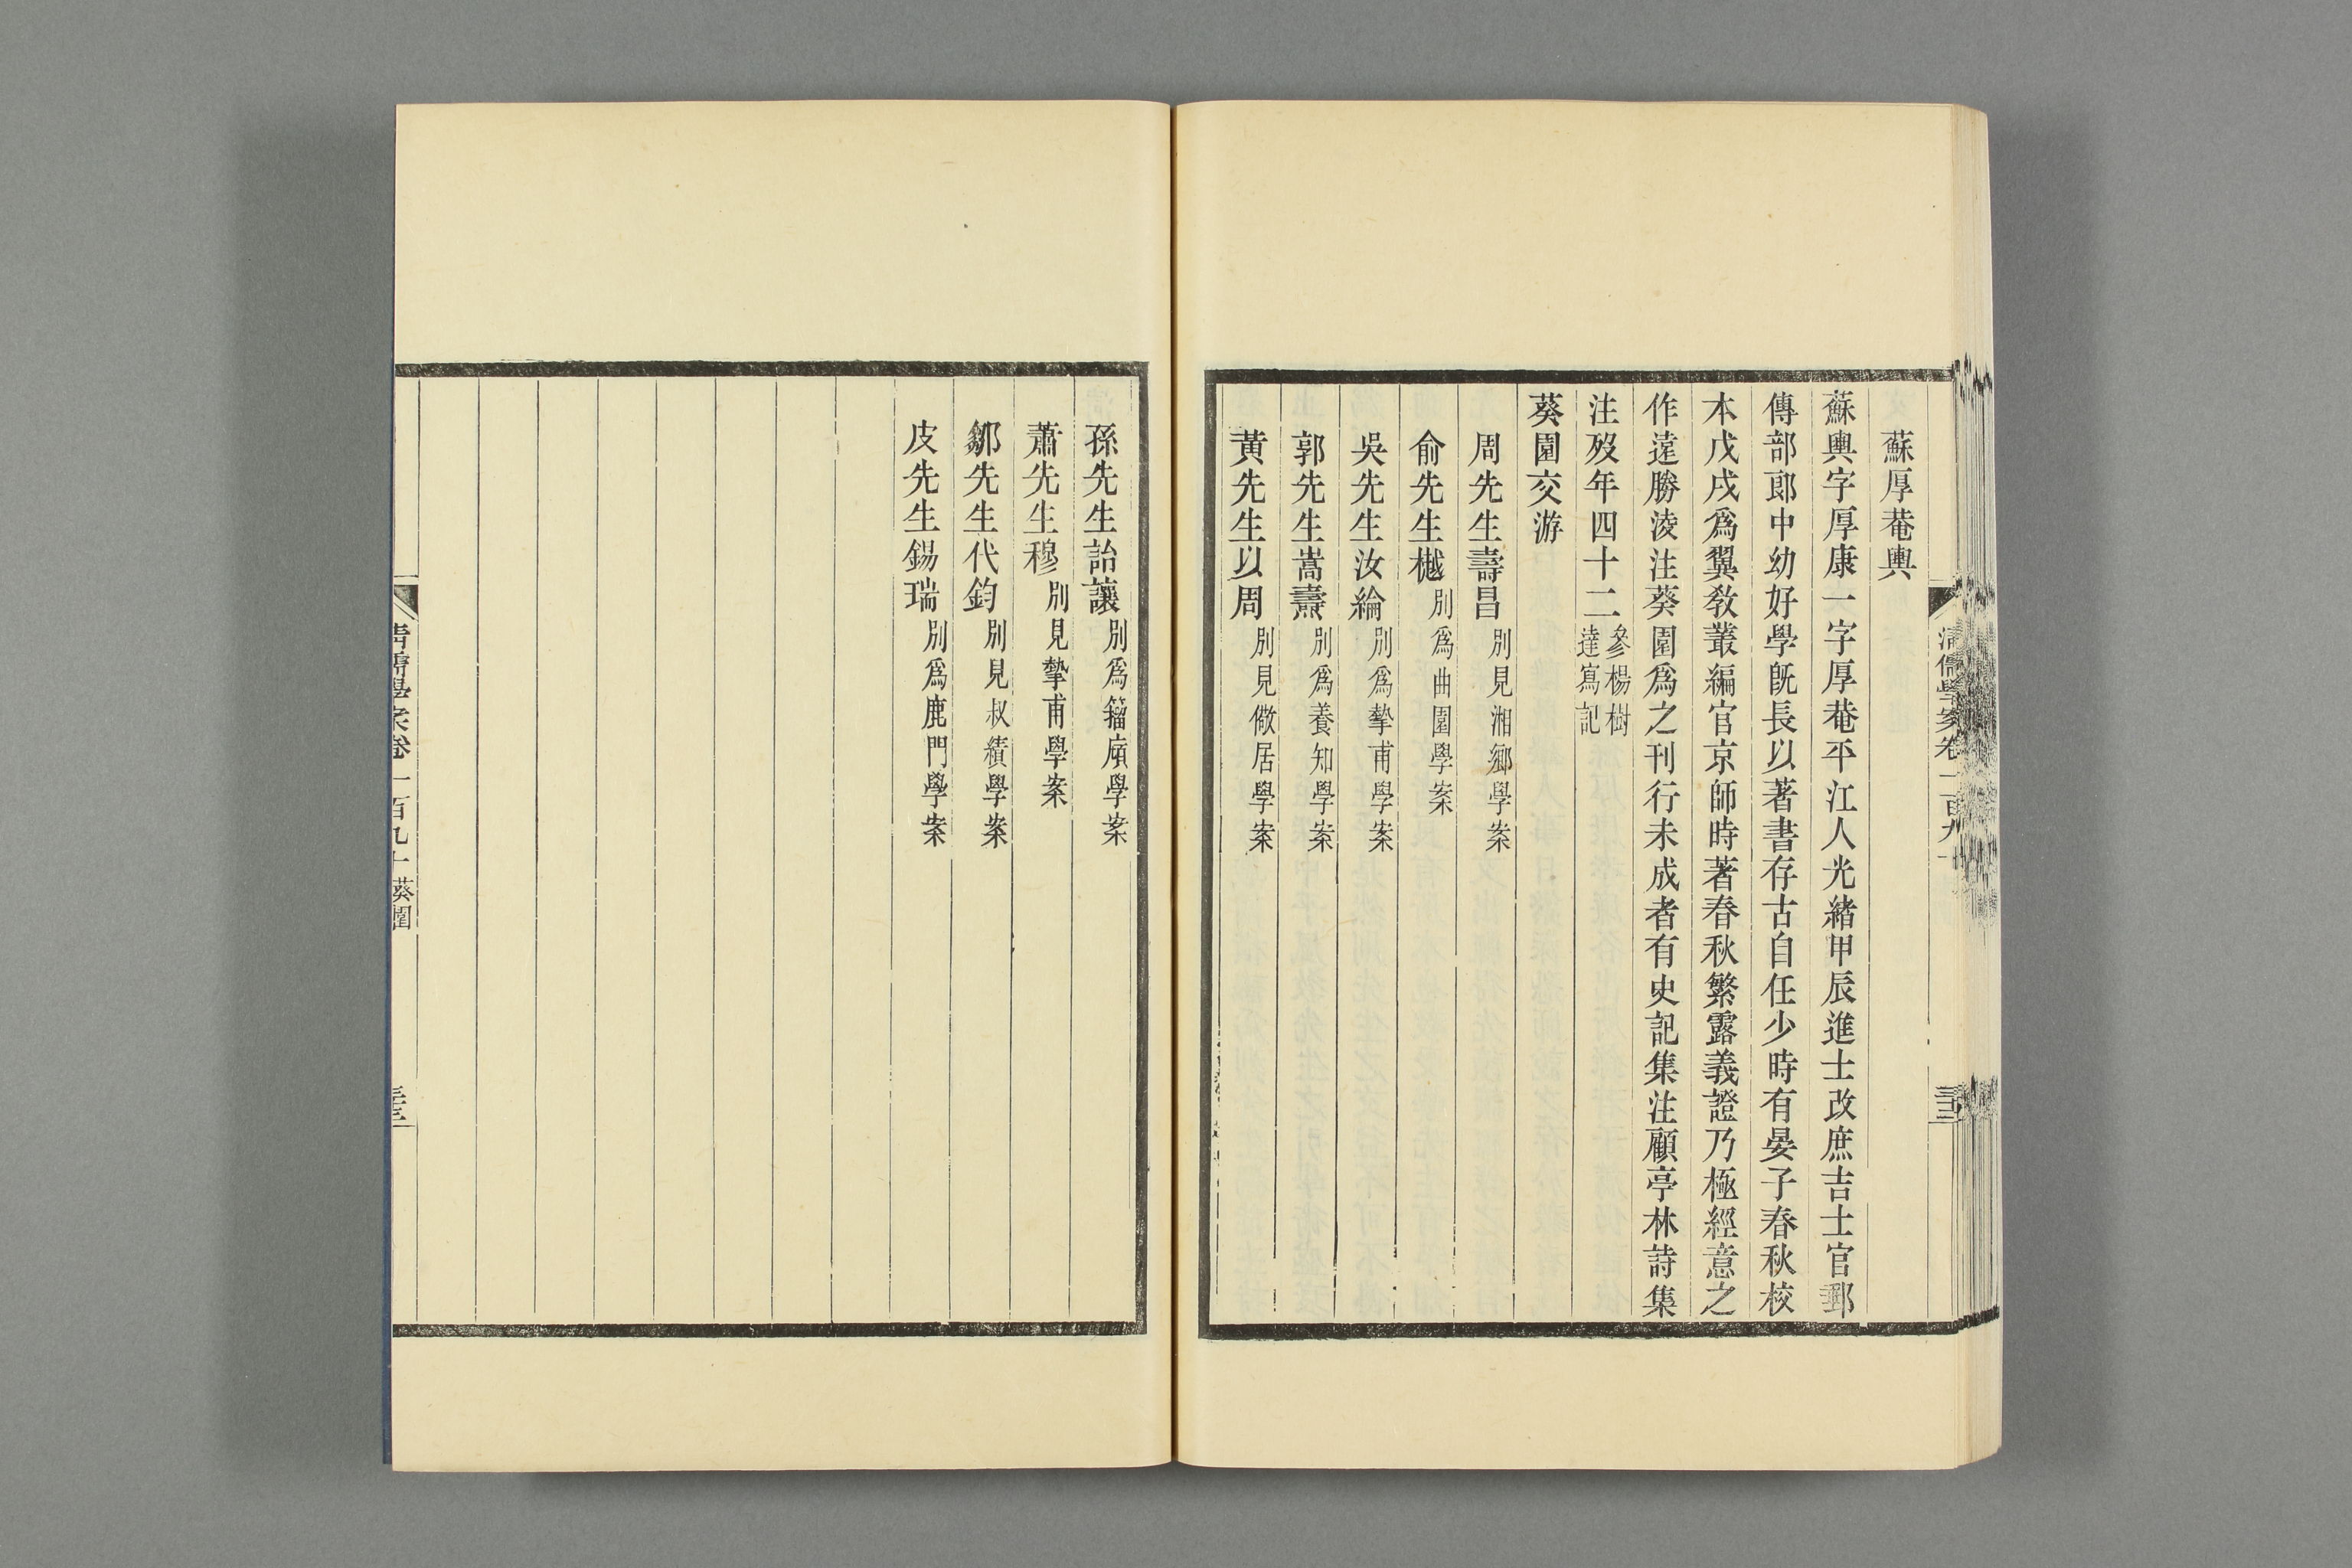 蘇厚菴輿
蘇輿字厚康一字厚菴平江人光緒甲辰進士改庶吉士官郵
傳部郎中幼好學旣長以著書存古自任少時有晏子春秋校
本戊戌爲翼敎叢編官京師時著春秋繁露義證乃極經意之
作達勝淩注葵園爲之刊行未成者有史記集注顧亭林詩集
注歿年四十二參楊樹達寫記
葵園交游
周先生壽昌別見湘鄉學案
俞先生樾別爲曲園學案
吳先生汝綸別爲摯甫學案
郭先生嵩燾別爲養知學案
黃先生以周別見儆居學案
孫先生詒讓別爲籀廎學案
蕭先生穆別見摯甫學案
鄒先生代鈞別見叔績學案
皮先生錫瑞別爲鹿門學案
清儒學案卷一百九十 葵園